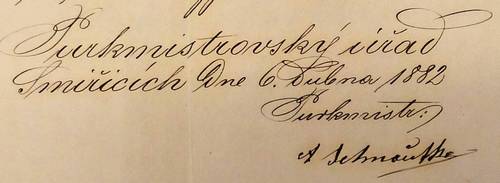 Purkmistrovský úřad
Smiřicích Dne 6. Dubna 1882
Purkmistr:
A